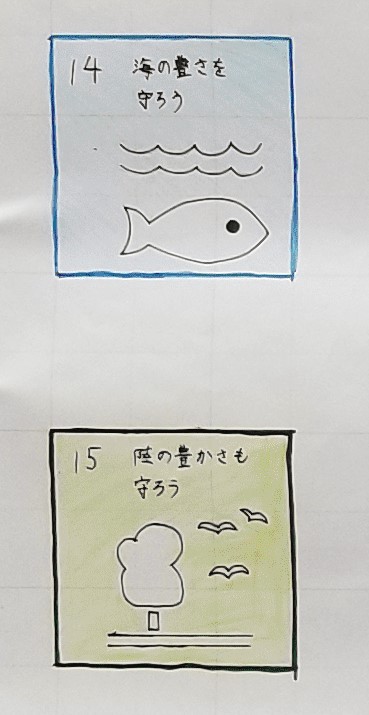 14 海の豊さを
守ろう
15 陸の豊かさも
守ろう